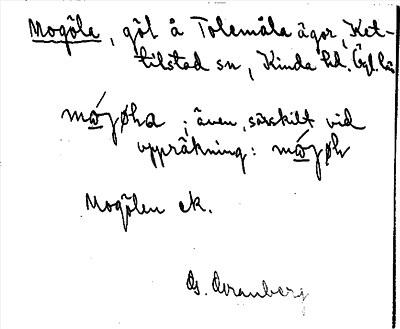 Mogöle, göl å Tolemåla ägor, Ket-
tilstad sn, Kinda hd. Ögl. län
; även, särskilt vid
uppräkning:
Mogölen ek.
G. Granberg